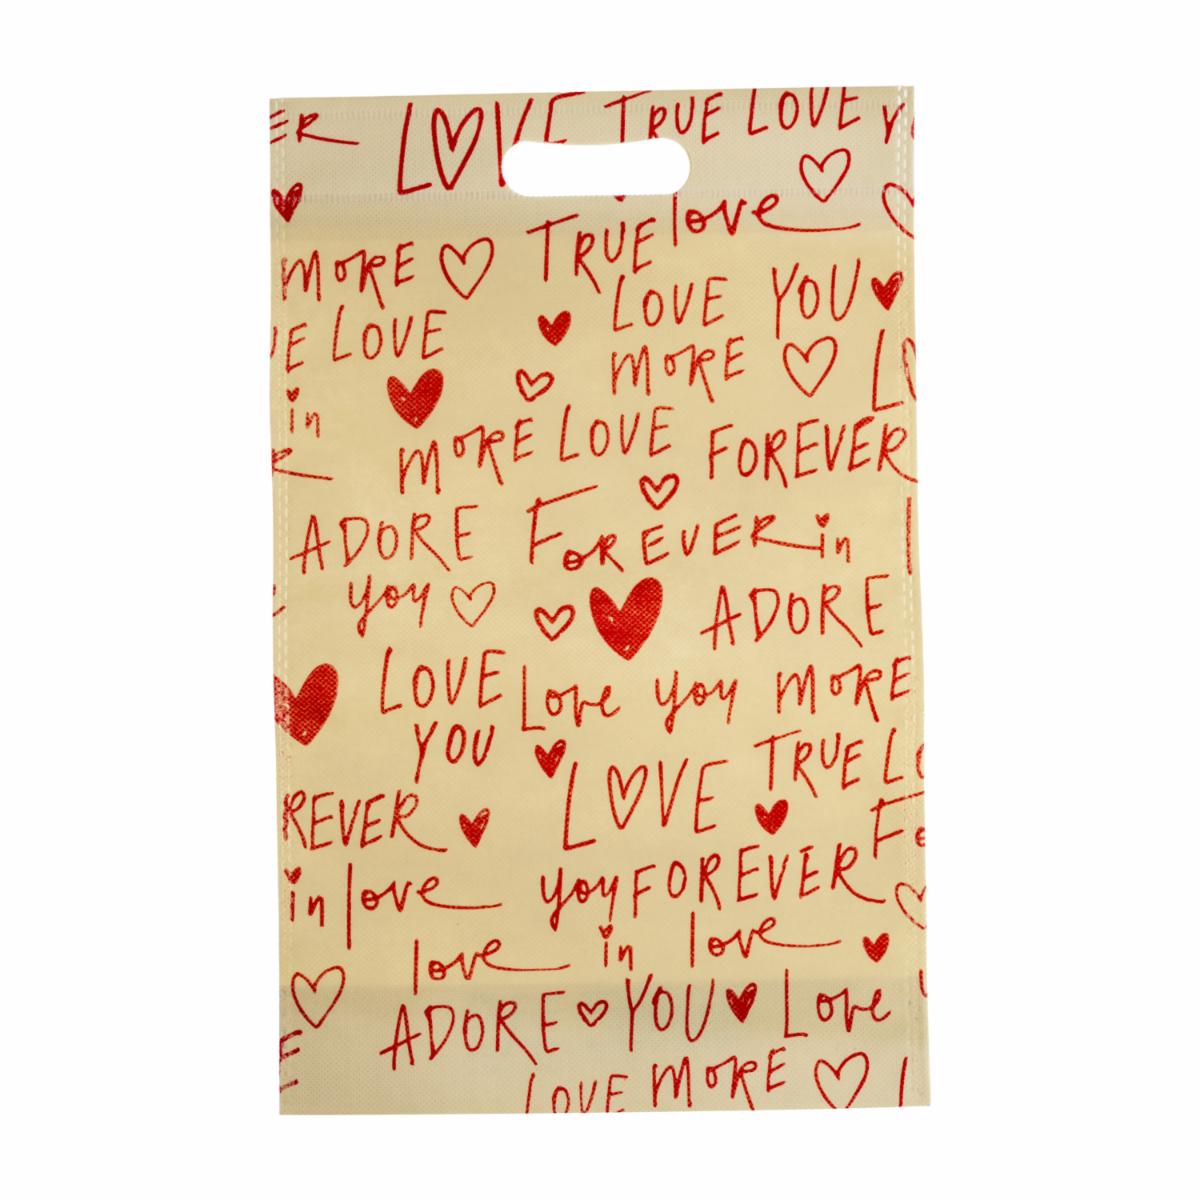 ER LOVE TRUE LOVE
TRUE love
MORE
LOVE YOU
E LOVE
MORE
in
MORE LOVE FOREVER
ADORE FOREVER in
you
ADORE
LOVE Love you MORE
YOU
TRUE LO
LOVE
REVER
FO
in love you FOREVER
love in love
ADORE YOU Love
LOVE MORE